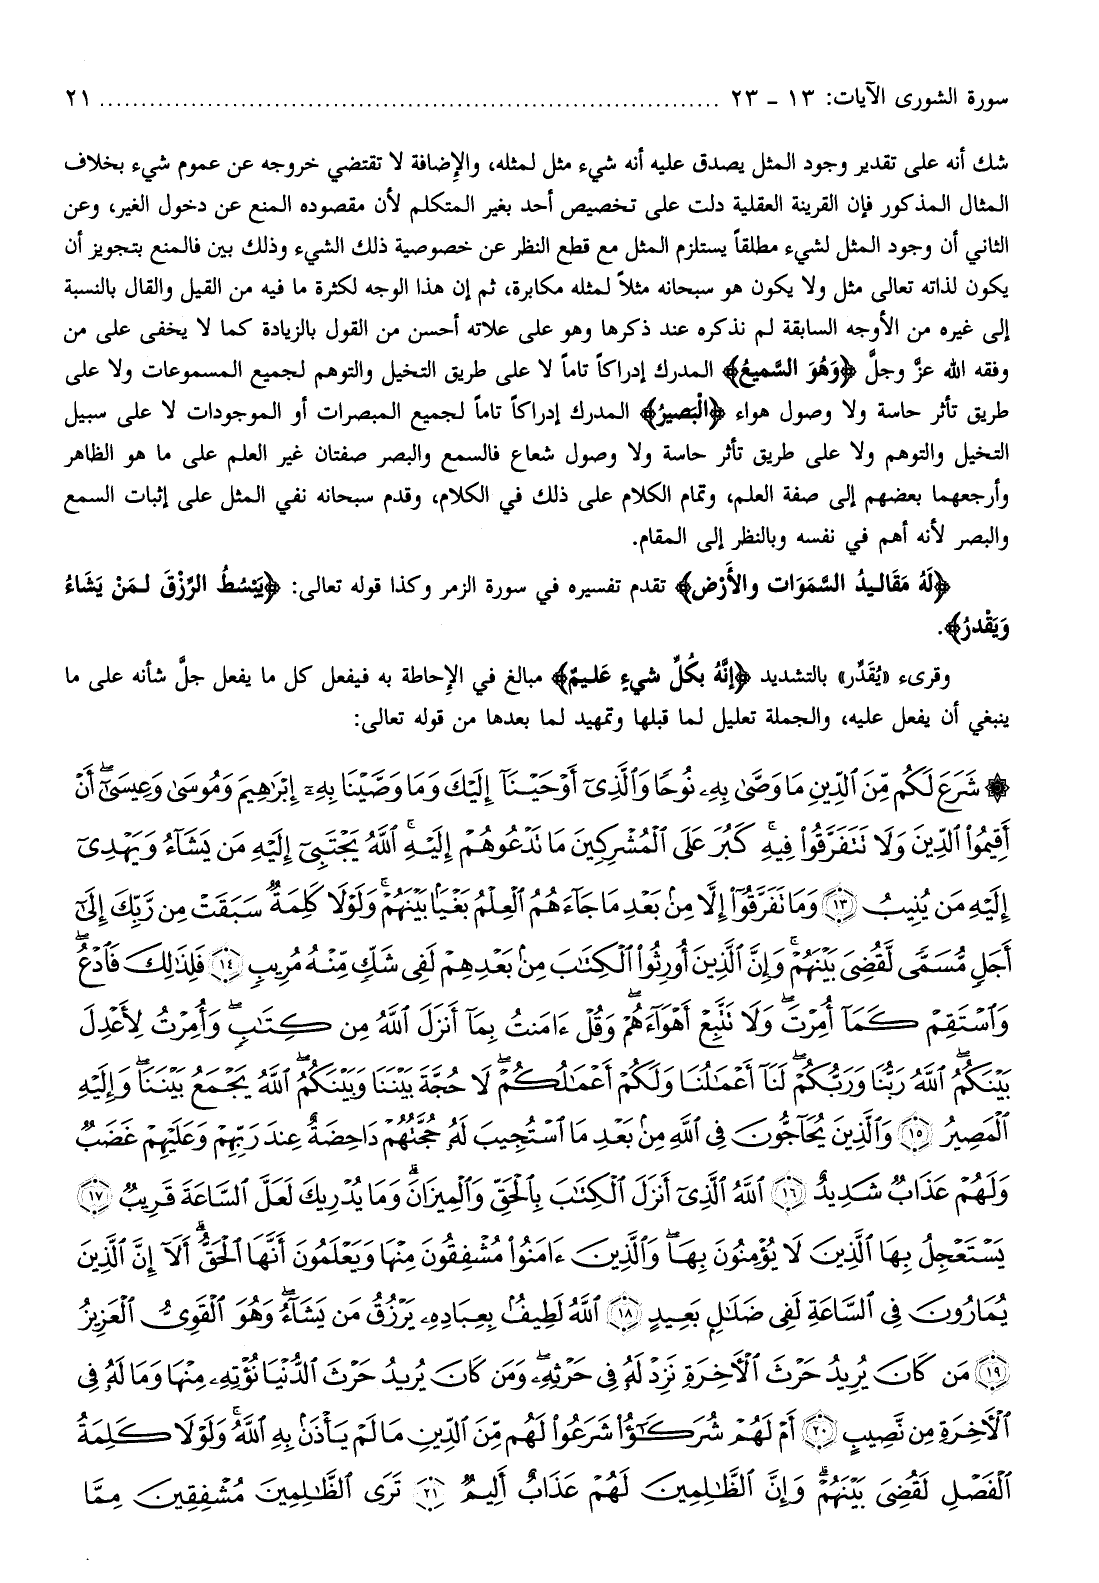 سورة الشورى الآيات: ١٣ - ٢٣ ........................................................................... ٢١
شك أنه على تقدير وجود المثل يصدق عليه أنه شيء مثل لمثله، والإضافة لا تقتضي خروجه عن عموم شيء بخلاف
المثال المذكور فإن القرينة العقلية دلت على تخصيص أحد بغير المتكلم لأن مقصوده المنع عن دخول الغير، وعن
الثاني أن وجود المثل لشيء مطلقاً يستلزم المثل مع قطع النظر عن خصوصية ذلك الشيء وذلك بين فالمنع بتجويز أن
يكون لذاته تعالى مثل ولا يكون هو سبحانه مثلاً لمثله مكابرة، ثم إن هذا الوجه لكثرة ما فيه من القيل والقال بالنسبة
إلى غيره من الأوجه السابقة لم نذكره عند ذكرها وهو على علاته أحسن من القول بالزيادة كما لا يخفى على من
وفقه الله عزَّ وجلَّ ﴿وَهُوَ السَّمِيعُ﴾ المدرك إدراكاً تاماً لا على طريق التخيل والتوهم لجميع المسموعات ولا على
طريق تأثر حاسة ولا وصول هواء ﴿الْبَصِيرُ﴾ المدرك إدراكاً تاماً لجميع المبصرات أو الموجودات لا على سبيل
التخيل والتوهم ولا على طريق تأثر حاسة ولا وصول شعاع فالسمع والبصر صفتان غير العلم على ما هو الظاهر
وأرجعهما بعضهم إلى صفة العلم، وتمام الكلام على ذلك في الكلام، وقدم سبحانه نفي المثل على إثبات السمع
والبصر لأنه أهم في نفسه وبالنظر إلى المقام.
﴿لَهُ مَقَالِيدُ السَّمَوَات والأَرْض﴾ تقدم تفسيره في سورة الزمر وكذا قوله تعالى: ﴿يَبْسُطُ الرِّزْقَ لمَنْ يَشَاءُ
وَيَقْدرُ﴾.
وقرىء «يُقَدِّر» بالتشديد ﴿إنَّهُ بكُلِّ شيءٍ عَليمٌ﴾ مبالغ في الإحاطة به فيفعل كل ما يفعل جلَّ شأنه على ما
ينبغي أن يفعل عليه، والجملة تعليل لما قبلها وتمهيد لما بعدها من قوله تعالى:
۞ شَرَعَ لَكُم مِّنَ ٱلدِّينِ مَا وَصَّىٰ بِهِۦ نُوحًا وَٱلَّذِىٓ أَوْحَيْنَآ إِلَيْكَ وَمَا وَصَّيْنَا بِهِۦٓ إِبْرَٰهِيمَ وَمُوسَىٰ وَعِيسَىٰٓۖ أَنْ
أَقِيمُوا۟ ٱلدِّينَ وَلَا تَتَفَرَّقُوا۟ فِيهِۚ كَبُرَ عَلَى ٱلْمُشْرِكِينَ مَا تَدْعُوهُمْ إِلَيْهِۚ ٱللَّهُ يَجْتَبِىٓ إِلَيْهِ مَن يَشَآءُ وَيَهْدِىٓ
إِلَيْهِ مَن يُنِيبُ ١٣ وَمَا تَفَرَّقُوٓا۟ إِلَّا مِنۢ بَعْدِ مَا جَآءَهُمُ ٱلْعِلْمُ بَغْيًۢا بَيْنَهُمْۚ وَلَوْلَا كَلِمَةٌ سَبَقَتْ مِن رَّبِّكَ إِلَىٰٓ
أَجَلٍ مُّسَمًّى لَّقُضِىَ بَيْنَهُمْۚ وَإِنَّ ٱلَّذِينَ أُورِثُوا۟ ٱلْكِتَٰبَ مِنۢ بَعْدِهِمْ لَفِى شَكٍّ مِّنْهُ مُرِيبٍ ١٤ فَلِذَٰلِكَ فَٱدْعُۖ
وَٱسْتَقِمْ كَمَآ أُمِرْتَۖ وَلَا تَتَّبِعْ أَهْوَآءَهُمْۖ وَقُلْ ءَامَنتُ بِمَآ أَنزَلَ ٱللَّهُ مِن كِتَٰبٍۖ وَأُمِرْتُ لِأَعْدِلَ
بَيْنَكُمُۖ ٱللَّهُ رَبُّنَا وَرَبُّكُمْۖ لَنَآ أَعْمَٰلُنَا وَلَكُمْ أَعْمَٰلُكُمْۖ لَا حُجَّةَ بَيْنَنَا وَبَيْنَكُمُۖ ٱللَّهُ يَجْمَعُ بَيْنَنَاۖ وَإِلَيْهِ
ٱلْمَصِيرُ ١٥ وَٱلَّذِينَ يُحَآجُّونَ فِى ٱللَّهِ مِنۢ بَعْدِ مَا ٱسْتُجِيبَ لَهُۥ حُجَّتُهُمْ دَاحِضَةٌ عِندَ رَبِّهِمْ وَعَلَيْهِمْ غَضَبٌ
وَلَهُمْ عَذَابٌ شَدِيدٌ ١٦ ٱللَّهُ ٱلَّذِىٓ أَنزَلَ ٱلْكِتَٰبَ بِٱلْحَقِّ وَٱلْمِيزَانَۗ وَمَا يُدْرِيكَ لَعَلَّ ٱلسَّاعَةَ قَرِيبٌ ١٧
يَسْتَعْجِلُ بِهَا ٱلَّذِينَ لَا يُؤْمِنُونَ بِهَاۖ وَٱلَّذِينَ ءَامَنُوا۟ مُشْفِقُونَ مِنْهَا وَيَعْلَمُونَ أَنَّهَا ٱلْحَقُّۗ أَلَآ إِنَّ ٱلَّذِينَ
يُمَارُونَ فِى ٱلسَّاعَةِ لَفِى ضَلَٰلٍۭ بَعِيدٍ ١٨ ٱللَّهُ لَطِيفٌۢ بِعِبَادِهِۦ يَرْزُقُ مَن يَشَآءُۖ وَهُوَ ٱلْقَوِىُّ ٱلْعَزِيزُ
١٩ مَن كَانَ يُرِيدُ حَرْثَ ٱلْءَاخِرَةِ نَزِدْ لَهُۥ فِى حَرْثِهِۦۖ وَمَن كَانَ يُرِيدُ حَرْثَ ٱلدُّنْيَا نُؤْتِهِۦ مِنْهَا وَمَا لَهُۥ فِى
ٱلْءَاخِرَةِ مِن نَّصِيبٍ ٢٠ أَمْ لَهُمْ شُرَكَٰٓؤُا۟ شَرَعُوا۟ لَهُم مِّنَ ٱلدِّينِ مَا لَمْ يَأْذَنۢ بِهِ ٱللَّهُۚ وَلَوْلَا كَلِمَةُ
ٱلْفَصْلِ لَقُضِىَ بَيْنَهُمْۗ وَإِنَّ ٱلظَّٰلِمِينَ لَهُمْ عَذَابٌ أَلِيمٌ ٢١ تَرَى ٱلظَّٰلِمِينَ مُشْفِقِينَ مِمَّا